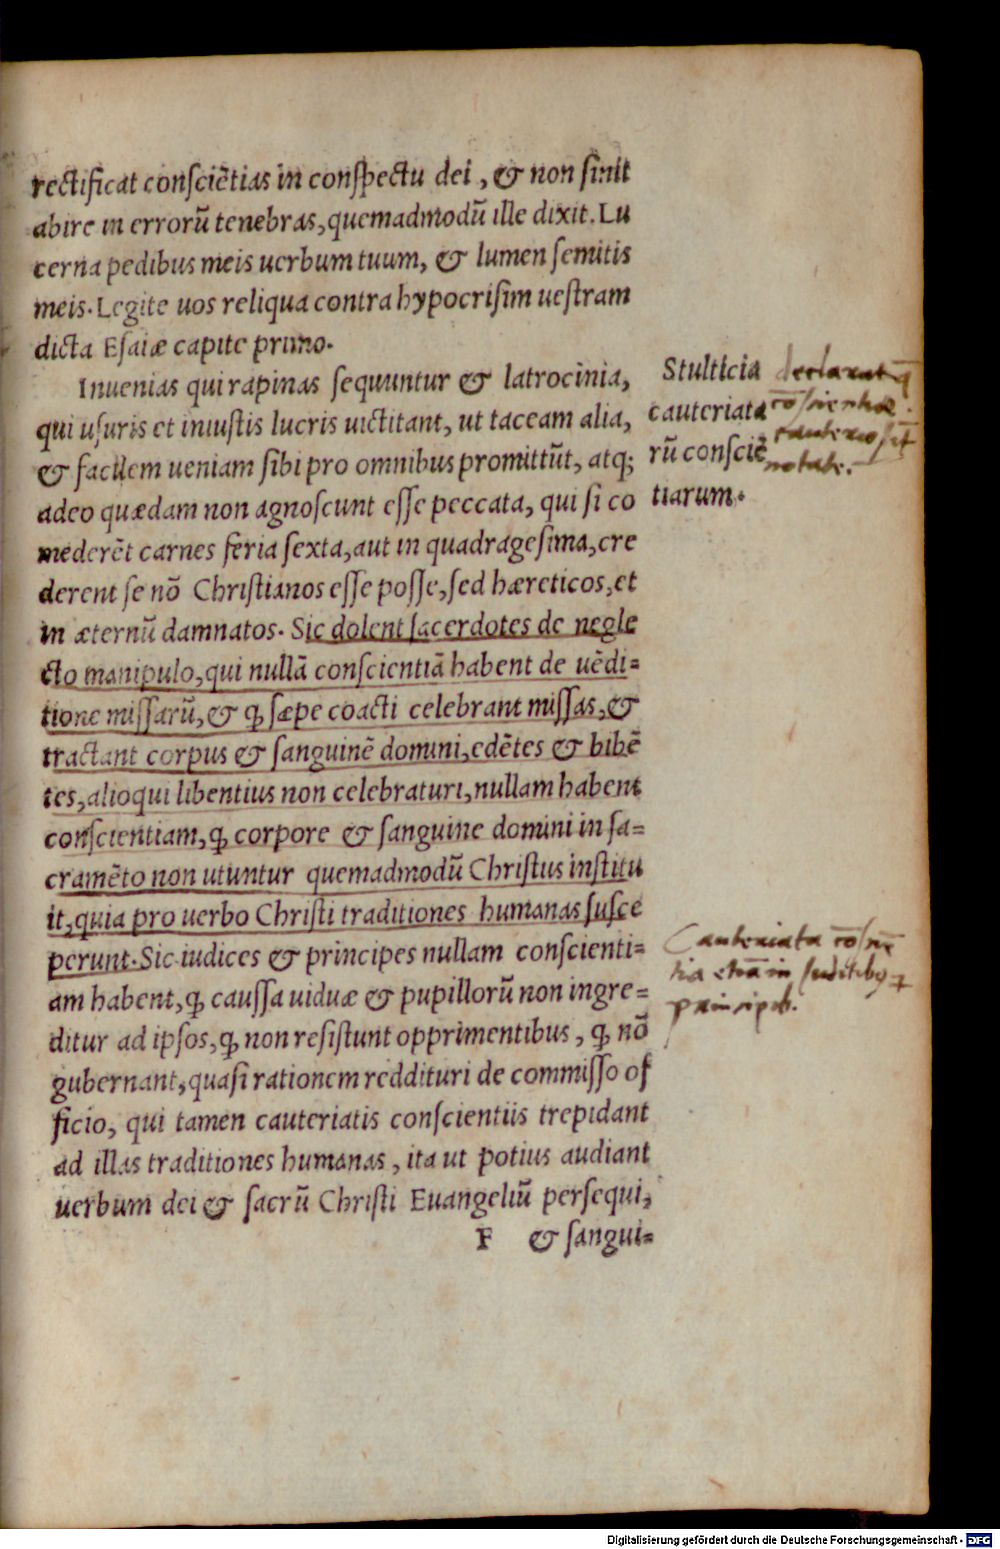 rectificat conſciētias in conſpectu dei, & non ſinit
abire in errorū tenebras, quemadmodū ille dixit. Lu
cerna pedibus meis uerbum tuum, & lumen ſemitis
meis. Legite uos reliqua contra hypocriſim ueſtram
dicta Eſaiæ capite primo.
Inuenias qui rapinas ſequuntur & latrocinia,
qui uſuris et iniuſtis lucris uictitant, ut taceam alia,
& facilem ueniam ſibi pro omnibus promittūt, atq;
adeo quædam non agnoſcunt eſſe peccata, qui ſi co
mederēt carnes feria ſexta, aut in quadrageſima, cre
derent ſe nō Chriſtianos eſſe poſſe, ſed hæreticos, et
in æternū damnatos. Sic dolent ſacerdotes de negle
cto manipulo, qui nullā conſcientiā habent de uēdi=
tione miſſarū, & ꝙ ſæpe coacti celebrant miſſas, &
tractant corpus & ſanguinē domini, edētes & bibē
tes, alioqui libentius non celebraturi, nullam habent
conſcientiam, ꝙ corpore & ſanguine domini in ſa=
cramēto non utuntur quemadmodū Chriſtus inſtitu
it, quia pro uerbo Chriſti traditiones humanas ſuſce
perunt. Sic iudices & principes nullam conſcienti=
am habent, ꝙ cauſſa uiduæ & pupillorū non ingre=
ditur ad ipſos, ꝙ non reſiſtunt opprimentibus, ꝙ nō
gubernant, quaſi rationem reddituri de commiſſo of
ficio, qui tamen cauteriatis conſcientiis trepidant
ad illas traditiones humanas, ita ut potius audiant
uerbum dei & ſacrū Chriſti Euangeliū perſequi,
F & ſangui=
Stulticia
cauteriata
rū conſciē
tiarum.
Cauteriata cōſciē
tia etiā in Iudicibꝰ
principib.
Digitalisierung gefördert durch die Deutsche Forschungsgemeinschaft - DFG